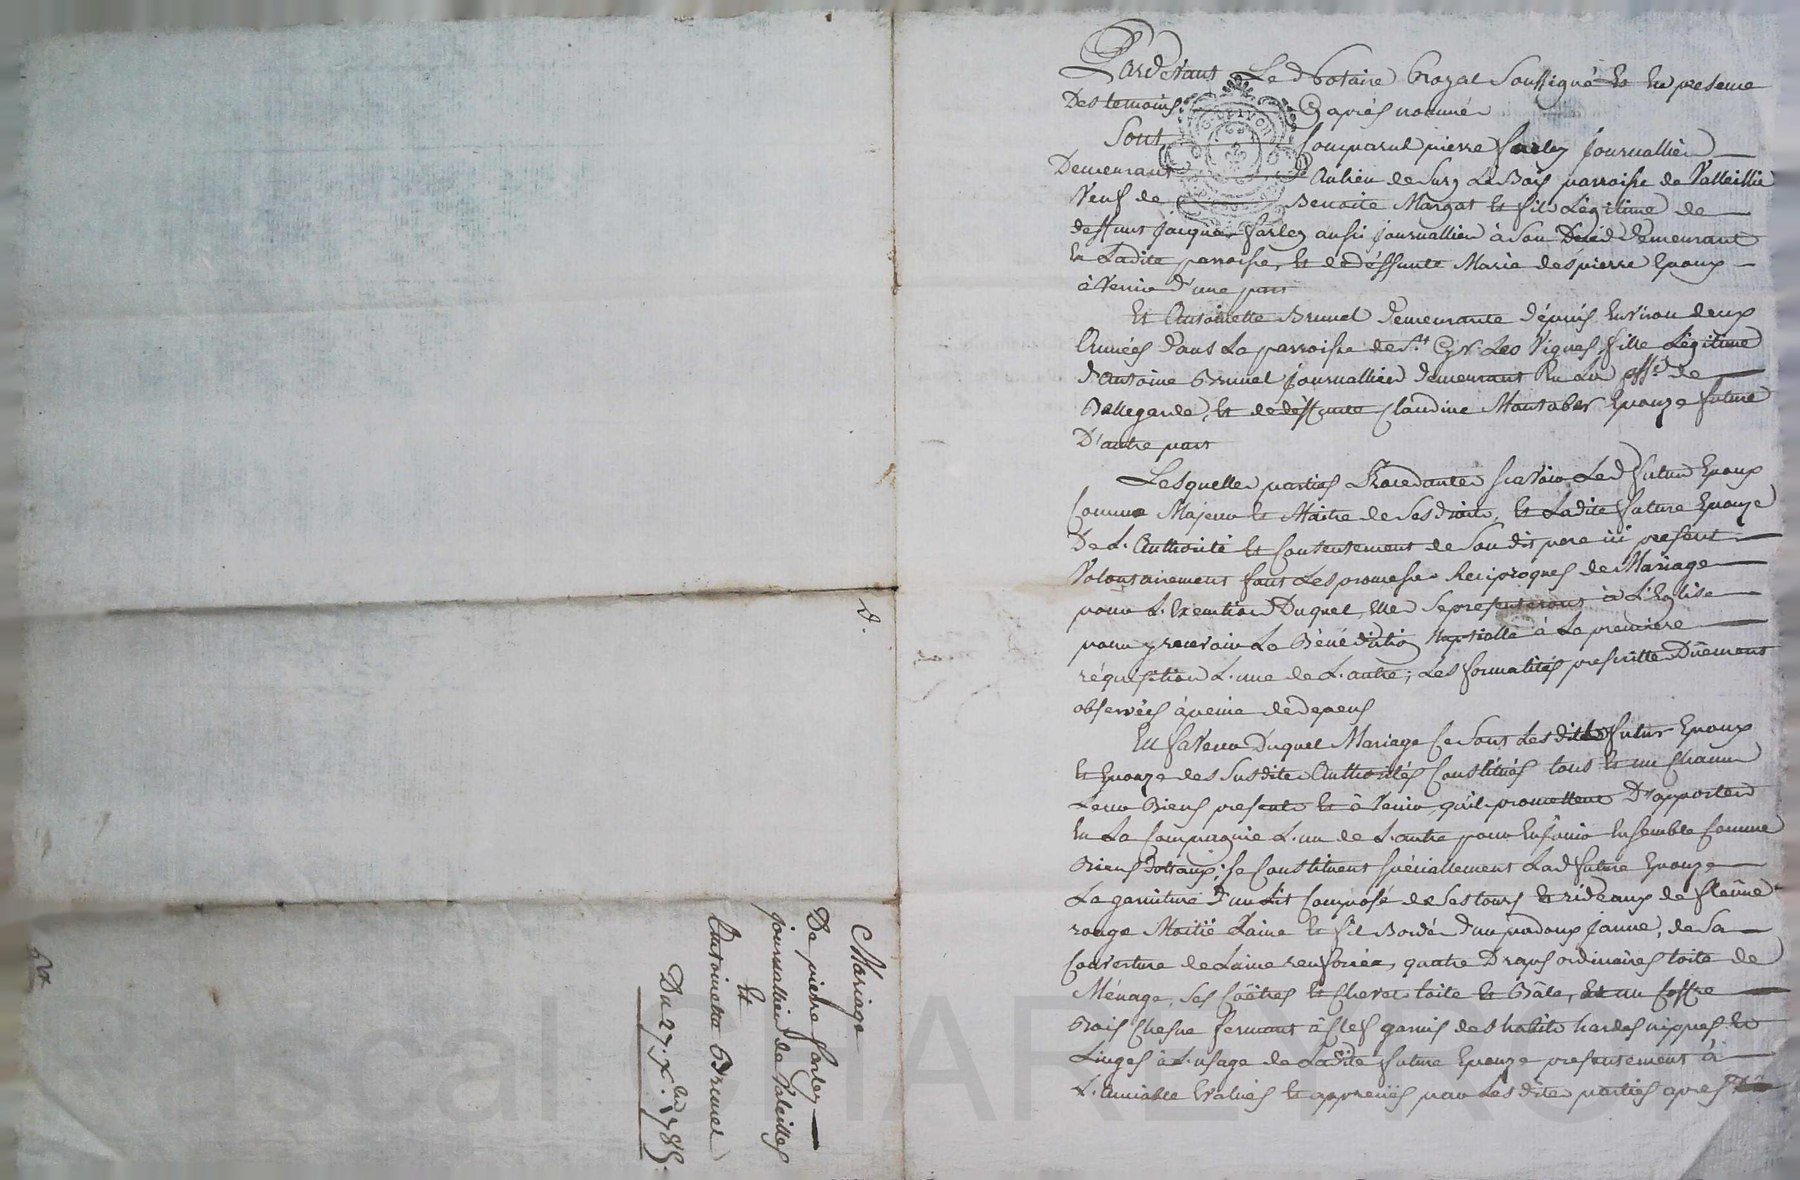 Pardevant Le Notaire Royal Soussigné Et En presence
Des temoins Cy après nommés
Sont Comparut pierre farley Journallier
Demeurant Au lieu de Sury Le Bois parroisse de Valleille
Veuf de Benoite Margat Et fils Légitime de
deffunt Jacques farley aussi Journallier à Son Decéd Demeurant
En Ladite parroisse, Et de déffunte Marie despierre Epoux
à Venir D'une part
Et Antoinette Brunel Demeurante dépuis Environ deux
Années Dans La parroisse de St Cyr Les Vignes, fille Légitime
D'antoine Brunel Journallier Demeurant En La de
Bellegarde, Et de deffunte Claudine Montabér Epouze future
D'autre part
Lesquelles parties Procedantes scavoir Led futur Epoux
Comme Majeur Et Maitre de Ses droits, Et Ladite future Epouze
De L'Authorité Et Consentement de Son dit pere ici present
Volontairement font Les promesses Reciproques de Mariage
pour L'Exemtion Duquel, Elles Se presenteront à L'Eglise
pour y recevoir La Bénédiction Nuptialle à La premiere
réquisition L'une de L'autre; Les formalités prescrittes Dûement
observées à peine de dépens
En faveur Duquel Mariage Se Sont Lesdits futur Epoux
Et Epouze des Susdites Authorités Constitués tous Et un Chacun
Leurs Biens presents Et à Venir qu'ils promettent D'apporter
En La Compagnie L'un de L'autre pour En jouir Ensemble Comme
Biens Dotaux; Se Constituent spéciallement Lad future Epouze
La garniture D'un Lit Composé de Ses tours Et rideaux de
rouge Moitié Laine Et fil Bordés D'un padoux Jaune, de Sa
Couverture de Laine renforcée, quatre Draps ordinaires toile de
Ménage, Ses Coëtres Et Chevet toile Et Bâle, Et un Coffre
Bois Chesne fermant à Clef garnis des habits hardes nippes Et
Linges à L'usage de Ladite future Epouze presentement à
L'Amiable Evalués Et appreciés par Lesdites parties après
D.
Mariage
De pierre farley
journallier de Valeilles
Et
Antoinette Brunel
Du 27. Xbre 1785.